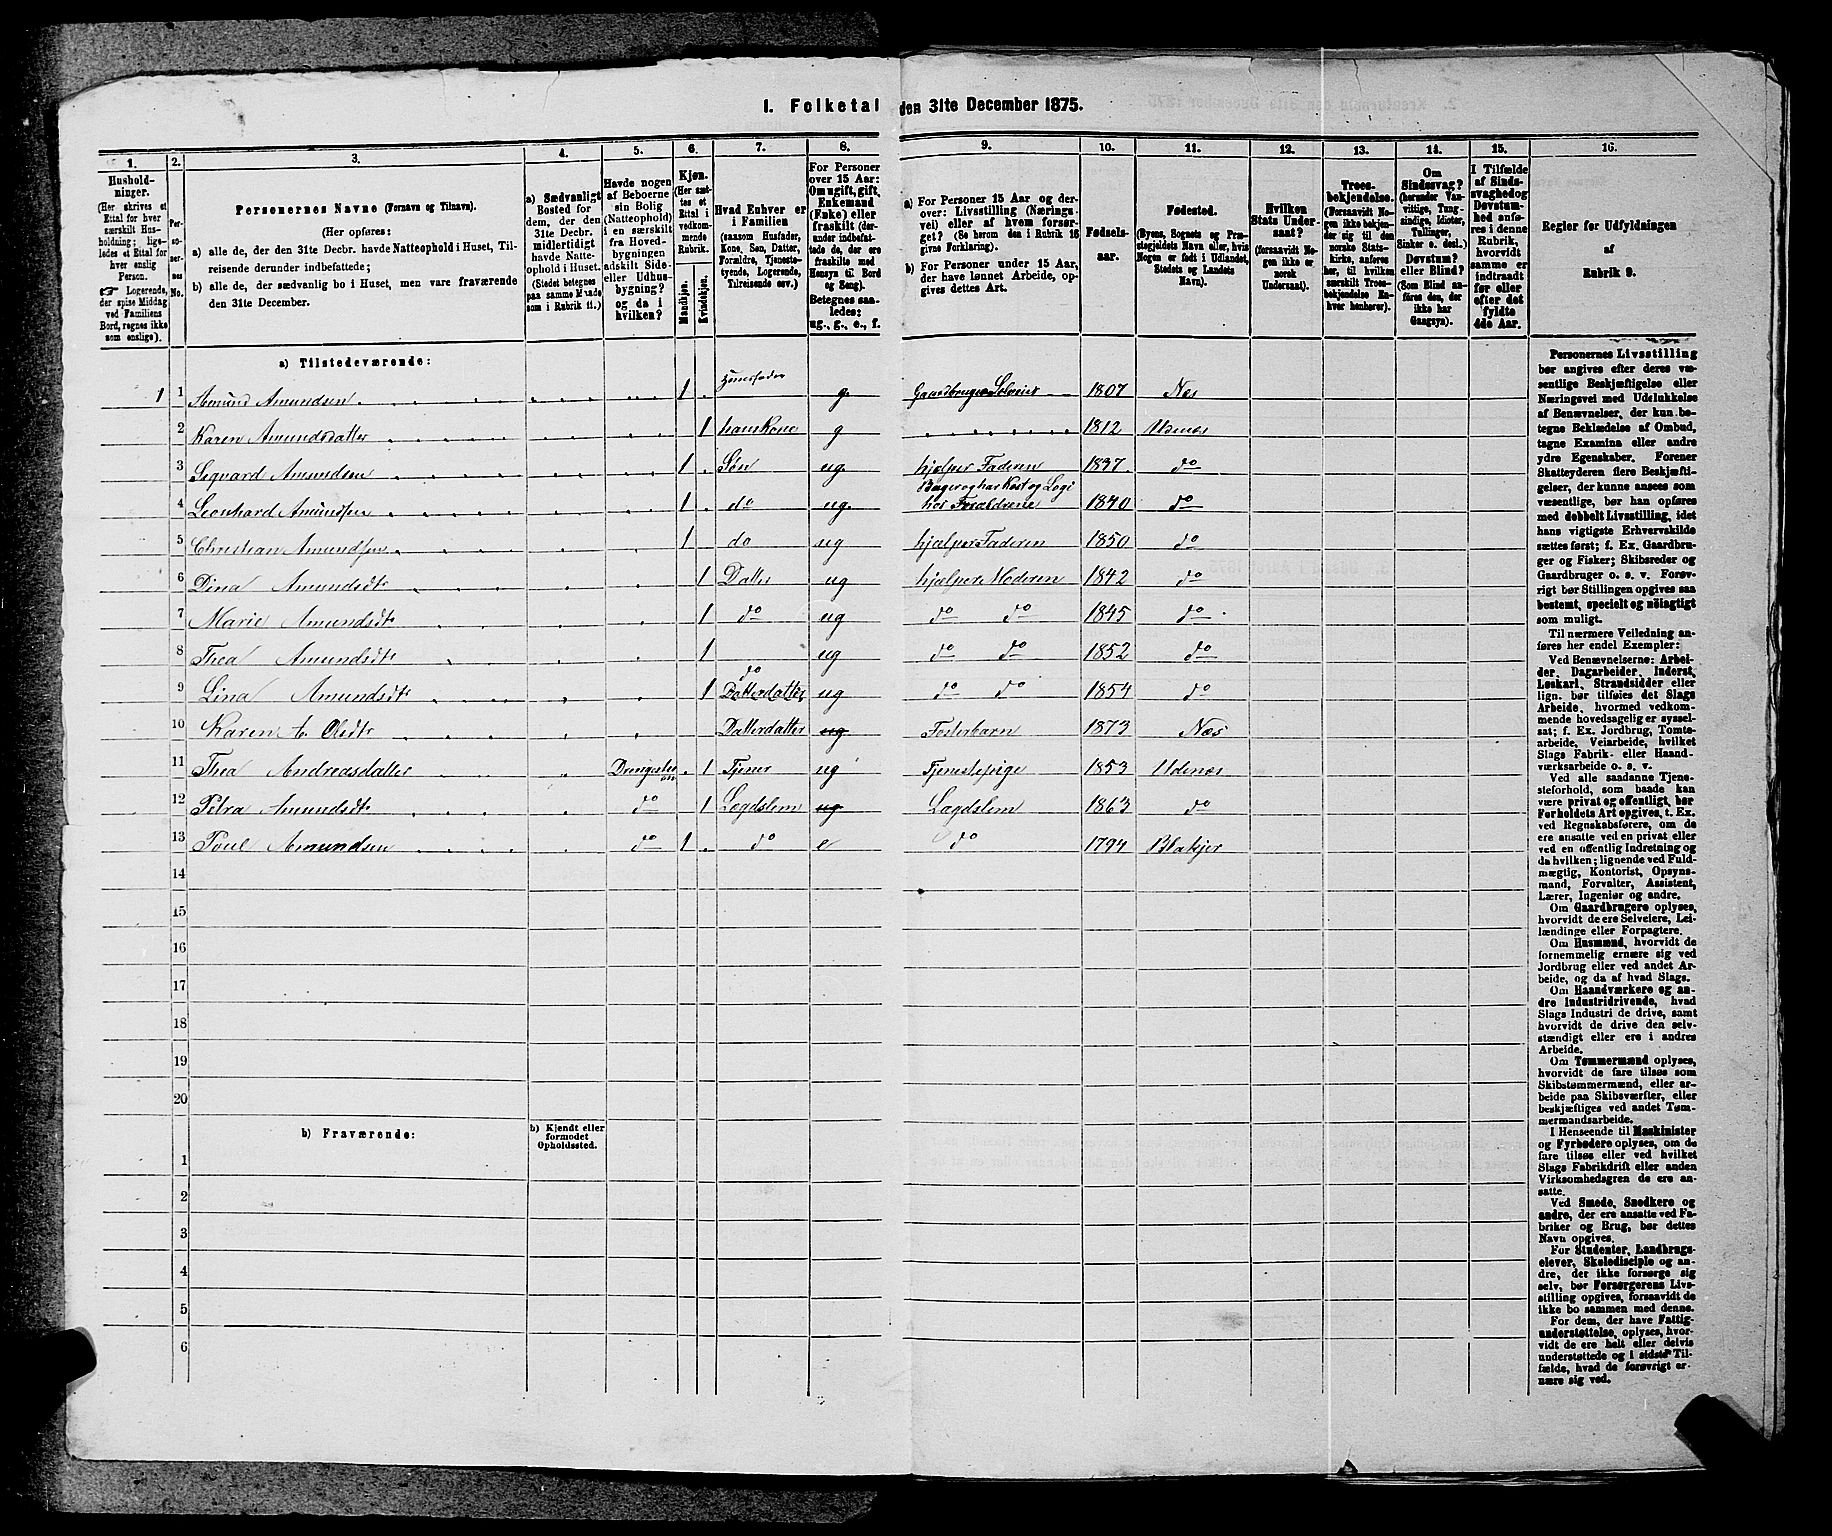 1. Folketal den 31te December 1875.
1. 2. 3. 4. 5. 6. 7. 8. 9. 10. 11. 12. 13. 14. 15. 16.
Hushold-
ninger.
(Her skrives et
Ettal for hver
særskilt Hus-
holdning; lige-
ledes et Ettal for
hver enslig
Person.
☞ Logerende,
der spise Middag
ved Familiens
Bord, regnes ikke
som enslige).
Per-
soner-
nes
No.
Personernes Navne (Fornavn og Tilnavn).
(Her opføres:
a) alle de, der den 31te Decbr. havde Natteophold i Huset, Til-
reisende derunder indbefattede;
b) alle de, der sædvanlig bo i Huset, men vare fraværende
den 31te December.
a) Sædvanligt
Bosted for
dem, der den
31te Decbr.
midlertidigt
havde Natte-
ophold i Huset.
(Stedet betegnes
paa samme Maade
som i Rubrik 11.)
Havde nogen
af Beboerne
sin Bolig
(Natteophold)
i en særskilt
fra Hoved-
bygningen
adskilt Side-
eller Udhus-
bygning?
og da i
hvilken?
Kjøn.
(Her sæt-
tes et
Ettal i
vedkom-
mende
Rubrik.
Mandkjøn.
Kvindekjøn.
Hvad Enhver er
i Familien
(saasom Husfader,
Kone, Søn, Datter,
Forældre, Tjeneste-
tyende, Logerende,
Tilreisende osv.)
For Personer
over 15 Aar:
Om ugift, gift,
Enkemand
(Enke) eller
fraskilt (der-
under indbefat-
tede de, der ere
fraskilte med
Hensyn til Bord
og Seng).
Betegnes saa-
ledes:
ug., g., e., f.
a) For Personer 15 Aar og der-
over: Livsstilling (Nærings-
vei) eller af hvem forsør-
get? (Se herom den i Rubrik 16
givne Forklaring).
b) For Personer under 15 Aar,
der have lønnet Arbeide, op-
gives dettes Art.
Fødsels-
aar.
Fødested.
(Byens, Sognets og Præ-
stegjeldets Navn eller, hvis
Nogen er født i Udlandet,
Stedets og Landets
Navn).
Hvilken
Stats Under-
saat?
(forsaavidt No-
gen ikke er
norsk
Undersaat).
Troes-
bekjendelse.
(Forsaavidt No-
gen ikke bekjen-
der sig til den
norske Stats-
kirke, anføres
her, til hvilken
særskilt Troes-
bekjendelse En-
hver henhører).
Om
Sindssvag?
(herunder Van-
vittige, Tung-
sindige, Idioter,
Tullinger,
Sinker o. desl.)
Døvstum?
eller Blind?
(Som Blind an-
føres den, der
ikke har
Gangsyn).
I Tilfælde
af Sinds-
svaghed og
Døvstum-
hed anfø-
res i denne
Rubrik,
hvorvidt
samme er
indtraadt
før eller
efter det
fyldte
4de Aar.
Regler for Udfyldningen
af
Rubrik 9.
a) Tilstedeværende:
1 1 Amund Amundsen 1 Huusfader g. Gaardbruger Selveier 1807 Næs
2 Karen Amundsdatter 1 hans Kone g 1812 Udenæs
3 Sigvard Amundsen 1 Søn ug. hjælper Faderen 1837 do
4 Leonhard Amundsen 1 do ug. Bager og har Kost og Logi
hos Forældrene 1840 do
5 Christian Amundsen 1 do ug hjælper Faderen 1850 do
6 Dina Amundsdt 1 Datter ug hjælpere Moderen 1842 do
7 Marie Amundsdt 1 do ug do do 1845 do
8 Thea Amundsdt 1 do ug do do 1852 do
9 Lina Amundsdt 1 Datterdatter ug do do 1854 do
10 Karen A. Olsdt Datterdatter ug Fosterbarn 1873 Næs
11 Thea Andreasdatter Drengestu-
en 1 Tjener ug Tjenestepige 1853 Udenæs
12 Petra Amundsdt do 1 Lægdslem ug Lægdslem 1863 do
13 Poul Amundsen do 1 do e do 1794 Blakjer
14
15
16
17
18
19
20
b) Fraværende:
b) Kjendt eller
formodet
Opholdssted.
1
2
3
4
5
6
Personernes Livsstilling
bør angives efter deres væ-
sentlige Beskjæftigelse eller
Næringsvei med Udelukkelse
af Benævnelser, der kun be-
tegne Beklædelse af Ombud,
tagne Examina eller andre
ydre Egenskaber. Forener
Skatteyderen flere Beskjæfti-
gelser, der kunne ansees som
væsentlige, bør han opføres
med dobbelt Livsstilling, idet
hans vigtigste Erhvervskilde
sættes først; f. Ex. Gaardbru-
ger og Fisker; Skibsreder og
Gaardbruger o. s. v. Forøv-
rigt bør Stillingen opgives saa
bestemt, specielt og nøiagtigt
som muligt.
Til nærmere Veiledning an-
føres her endel Exempler:
Ved Benævnelserne: Arbei-
der, Dagarbeider, Inderst,
Løskarl, Strandsidder eller
lign. bør tilføies det Slags
Arbeide, hvormed vedkom-
mende hovedsagelig er syssel-
sat; f. Ex. Jordbrug, Tomte-
arbeide, Veiarbeide, hvilket
Slags Fabrik- eller Haand-
værksarbeide o. s. v.
Ved alle saadanne Tjene-
steforhold, som baade kan
være privat og offentligt, bør
Forholdets Art opgives, t. Ex.
ved Regnskabsførere, om de
ere ansatte ved en privat eller
ved en offentlig Indretning og
da hvilken; lignende ved Fuld-
mægtig, Kontorist, Opsyns-
mand, Forvalter, Assistent,
Lærer, Ingeniør og andre.
Om Gaardbrugere oplyses,
hvorvidt de ere Selveiere, Lei-
lændinge eller Forpagtere.
Om Husmænd, hvorvidt de
fornemmelig ernære sig ved
Jordbrug eller ved andet Ar-
beide, og da af hvad Slags.
Om Haandværkere og an-
dre Industridrivende, hvad
Slags Industri de drive, samt
hvorvidt de drive den selv-
stændigt eller ere i andres
Arbeide.
Om Tømmermænd oplyses,
hvorvidt de fare tilsøs som
Skibstømmermænd, eller ar-
beide paa Skibsværfter, eller
beskjæftiges ved andet Tøm-
mermandsarbeide.
I Henseende til Maskinister
og Fyrbødere oplyses, om de
fare tilsøs eller ved hvilket
Slags Fabrikdrift eller anden
Virksomhedsgren de ere an-
satte.
Ved Smede, Snedkere og
andre, der ere ansatte ved Fa-
briker og Brug, bør dettes
Navn opgives.
For Studenter, Landbrugs-
elever, Skoledisciple og an-
dre, der ikke forsørge sig
selv, bør Forsørgerens Livs-
stilling opgives, forsaavidt de
ikke bo sammen med denne.
For dem, der have Fattig-
understøttelse, oplyses, hvor-
vidt de ere helt eller delvis
understøttede og i sidste Til-
fælde, hvad de forøvrigt er-
nære sig ved.